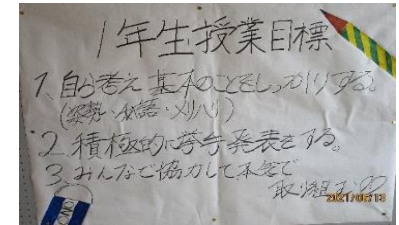 1年生授業目標
1、自ら考え基本のことをしっかりする。
(姿勢・私語・メリハリ)
2、積極的に挙手発表をする。
3、みんなで協力して本気で
取り組む
MONO
2021/05/13